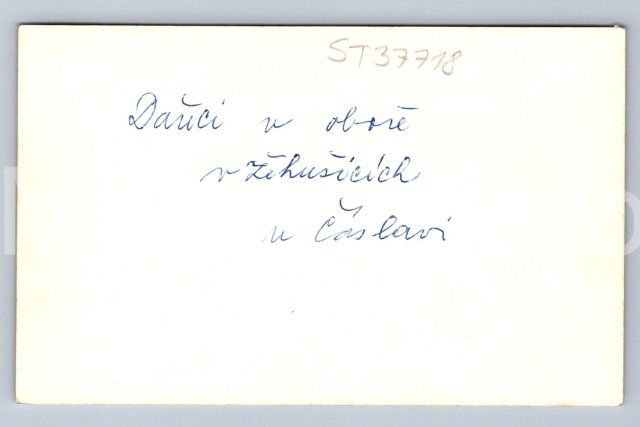 ST37718
Daňci v oboře
v Žehušicích
u Čáslavi